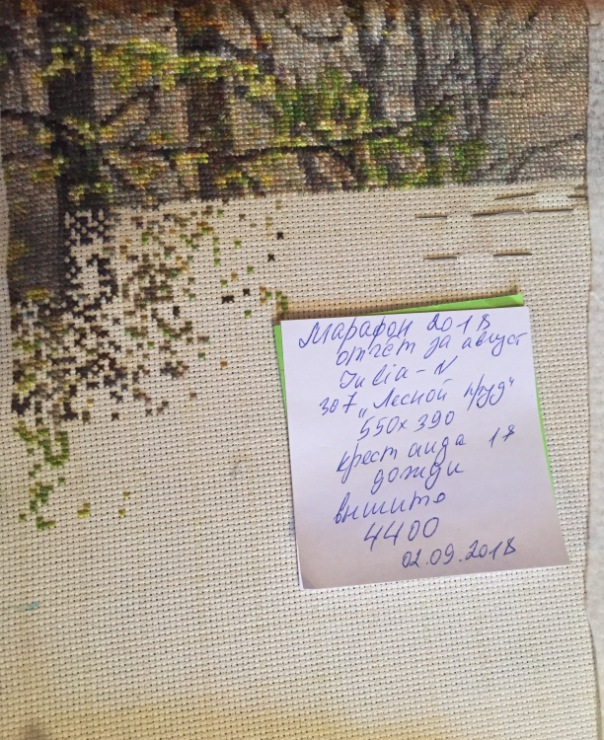 Марафон 2018
отчёт за август
Julia-N
307 „Лесной пруд"
550х390
крест аида 18
дожди
вышито
4400
02.09.2018